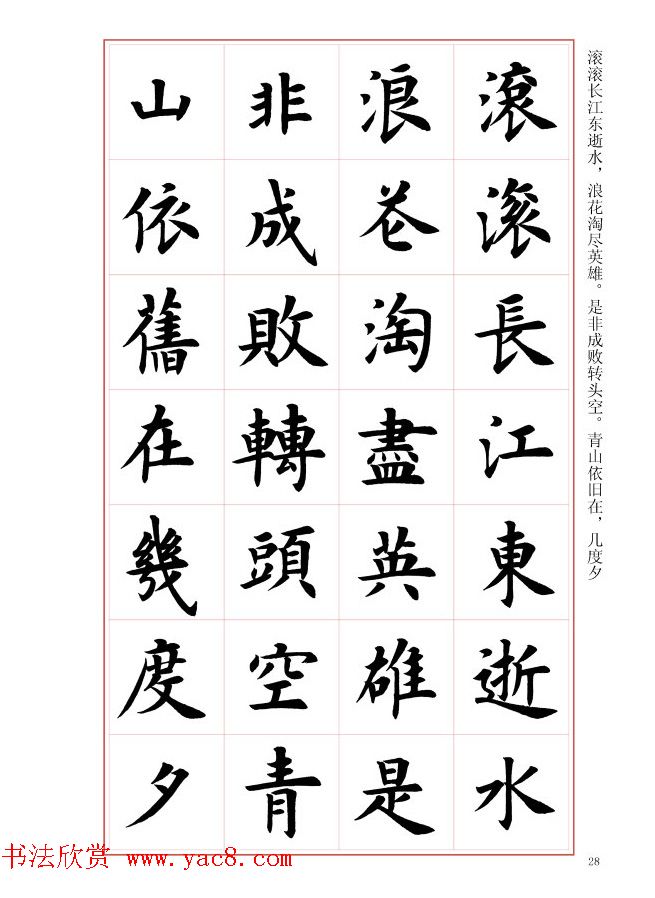 滾滾長江東逝水
浪花淘盡英雄是
非成敗轉頭空青
山依舊在幾度夕
滚滚长江东逝水，浪花淘尽英雄。是非成败转头空。青山依旧在，几度夕
28
书法欣赏 www.yac8.com